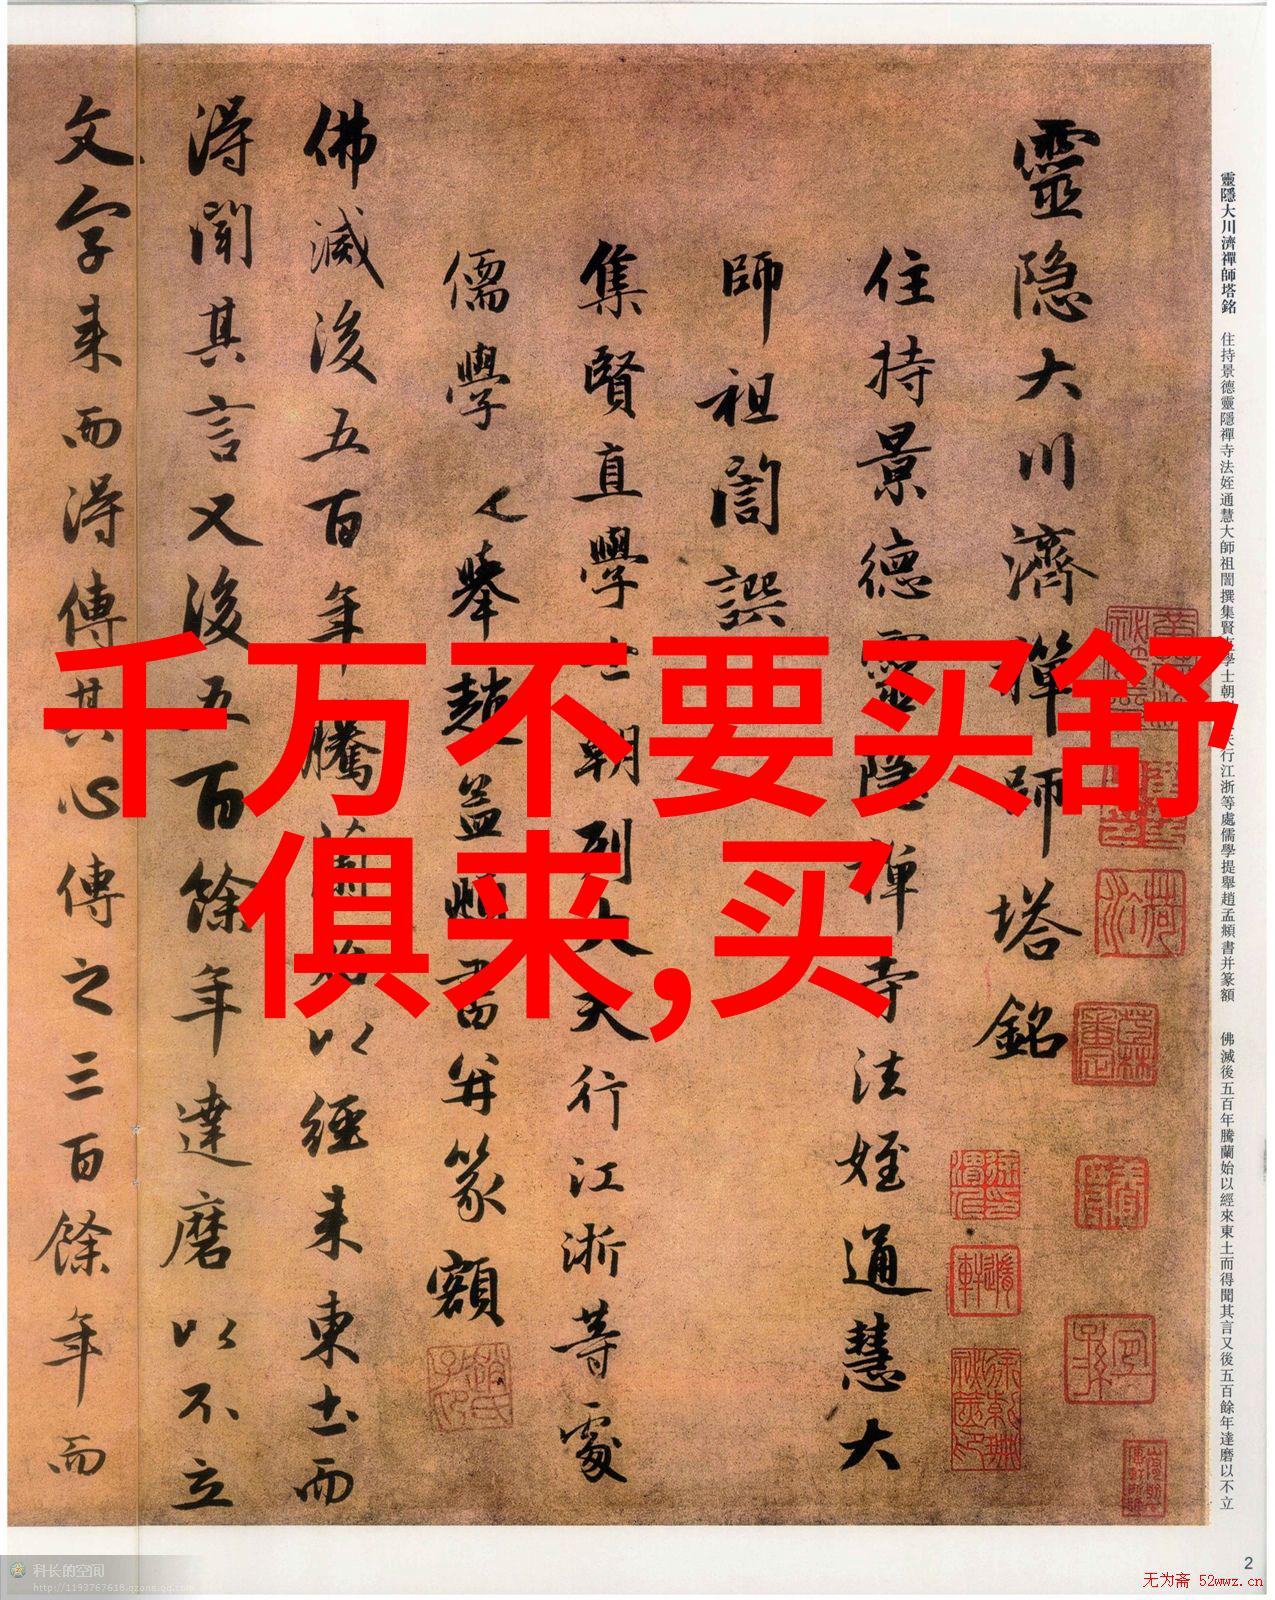 千万不要买舒
俱来,买
靈隱大川濟禪師塔銘 住持景德靈隱禪寺法姪通慧大師祖誾撰集賢直學士朝夫行江浙等處儒學提舉趙孟頫書并篆額 佛滅後五百年騰蘭始以經來東土而得聞其言又後五百餘年達磨以不立
靈隐大川濟禪師塔銘
住持景德靈隐禪寺法姪通慧大
師祖誾譔
集賢直學士朝列大夫行江浙等處
儒學舉趙孟頫書并篆額
佛滅後五百年騰蘭始以經来東土而
得聞其言又後五百餘年達磨以不立
文字来而得傳其心傳之三百餘年而
科长的空间
http://1193767618.qzone.qq.com
2
无为斋 52wwz.cn